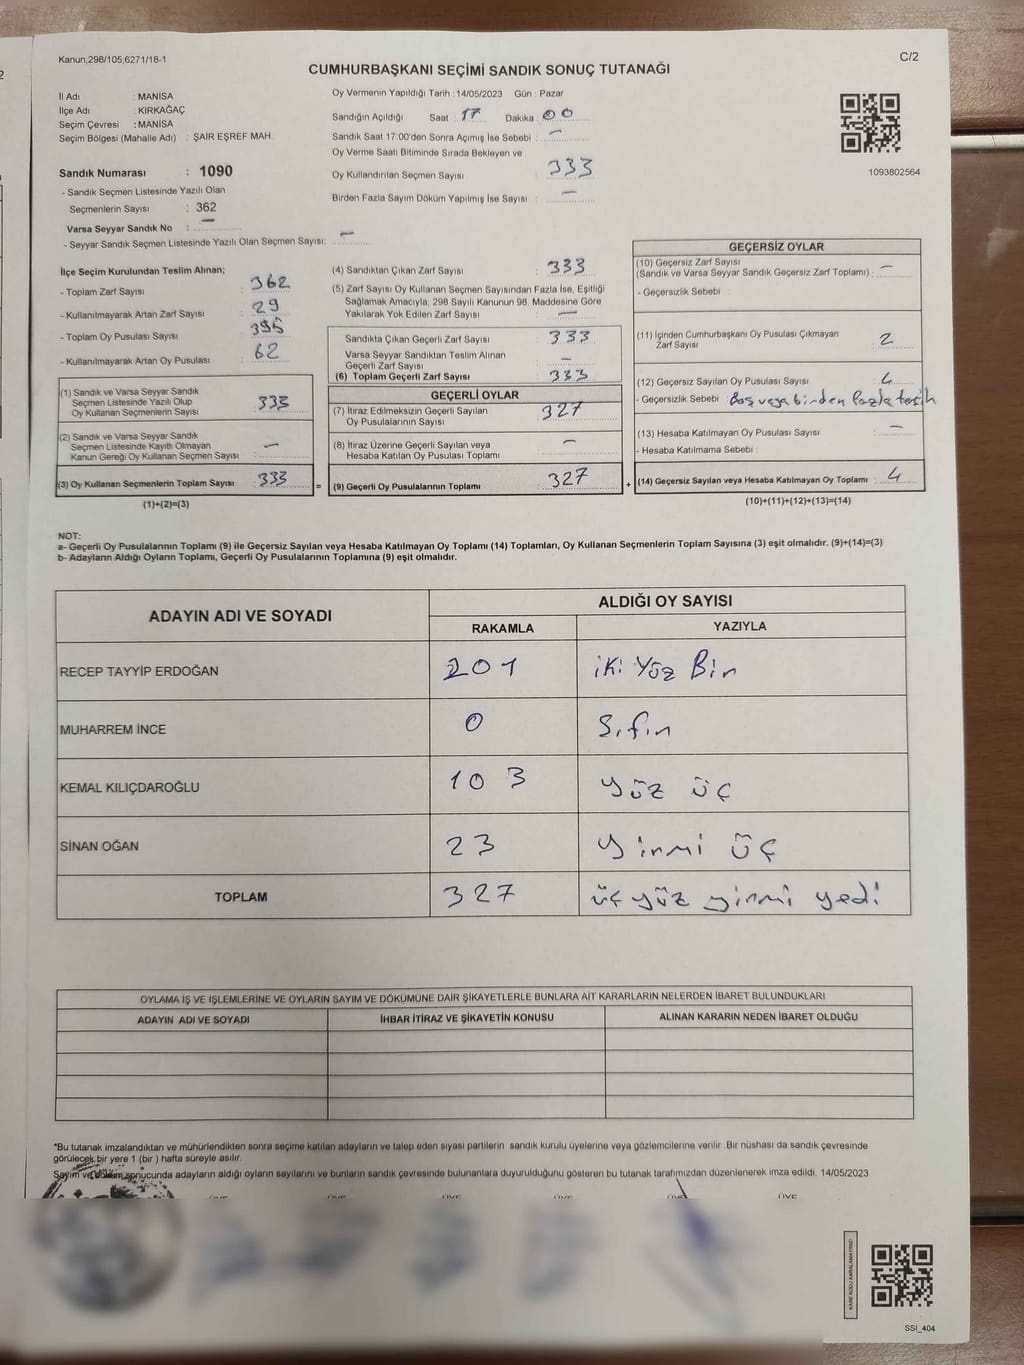 Kanun;298/105;6271/18-1
C/2
CUMHURBAŞKANI SEÇİMİ SANDIK SONUÇ TUTANAĞI
İl Adı : MANİSA
İlçe Adı : KIRKAĞAÇ
Seçim Çevresi : MANİSA
Seçim Bölgesi (Mahalle Adı) : ŞAİR EŞREF MAH.
Sandık Numarası : 1090
- Sandık Seçmen Listesinde Yazılı Olan
Seçmenlerin Sayısı : 362
Varsa Seyyar Sandık No : —
- Seyyar Sandık Seçmen Listesinde Yazılı Olan Seçmen Sayısı: —
Oy Vermenin Yapıldığı Tarih : 14/05/2023 Gün : Pazar
Sandığın Açıldığı Saat 17 Dakika 00
Sandık Saat 17:00'den Sonra Açımış İse Sebebi : —
Oy Verme Saati Bitiminde Sırada Bekleyen ve
Oy Kullandırılan Seçmen Sayısı : 333
Birden Fazla Sayım Döküm Yapılmış İse Sayısı : —
1093802564
İlçe Seçim Kurulundan Teslim Alınan;
- Toplam Zarf Sayısı : 362
- Kullanılmayarak Artan Zarf Sayısı : 29
- Toplam Oy Pusulası Sayısı : 395
- Kullanılmayarak Artan Oy Pusulası : 62
(1) Sandık ve Varsa Seyyar Sandık
Seçmen Listesinde Yazılı Olup
Oy Kullanan Seçmenlerin Sayısı : 333
(2) Sandık ve Varsa Seyyar Sandık
Seçmen Listesinde Kayıtlı Olmayan
Kanun Gereği Oy Kullanan Seçmen Sayısı : —
(3) Oy Kullanan Seçmenlerin Toplam Sayısı : 333 =
(1)+(2)=(3)
(4) Sandıktan Çıkan Zarf Sayısı : 333
(5) Zarf Sayısı Oy Kullanan Seçmen Sayısından Fazla İse, Eşitliği
Sağlamak Amacıyla; 298 Sayılı Kanunun 98. Maddesine Göre
Yakılarak Yok Edilen Zarf Sayısı : —
Sandıkta Çıkan Geçerli Zarf Sayısı : 333
Varsa Seyyar Sandıktan Teslim Alınan
Geçerli Zarf Sayısı : —
(6) Toplam Geçerli Zarf Sayısı : 333
GEÇERLİ OYLAR
(7) İtiraz Edilmeksizin Geçerli Sayılan
Oy Pusulalarının Sayısı : 327
(8) İtiraz Üzerine Geçerli Sayılan veya
Hesaba Katılan Oy Pusulası Toplamı : —
(9) Geçerli Oy Pusulalarının Toplamı : 327 +
GEÇERSİZ OYLAR
(10) Geçersiz Zarf Sayısı
(Sandık ve Varsa Seyyar Sandık Geçersiz Zarf Toplamı) : —
- Geçersizlik Sebebi :
(11) İçinden Cumhurbaşkanı Oy Pusulası Çıkmayan
Zarf Sayısı : 2
(12) Geçersiz Sayılan Oy Pusulası Sayısı : 4
- Geçersizlik Sebebi : Boş veya birden fazla tercih
(13) Hesaba Katılmayan Oy Pusulası Sayısı : —
- Hesaba Katılmama Sebebi :
(14) Geçersiz Sayılan veya Hesaba Katılmayan Oy Toplamı : 4
(10)+(11)+(12)+(13)=(14)
NOT:
a- Geçerli Oy Pusulalarının Toplamı (9) ile Geçersiz Sayılan veya Hesaba Katılmayan Oy Toplamı (14) Toplamları, Oy Kullanan Seçmenlerin Toplam Sayısına (3) eşit olmalıdır. (9)+(14)=(3)
b- Adayların Aldığı Oyların Toplamı, Geçerli Oy Pusulalarının Toplamına (9) eşit olmalıdır.
ADAYIN ADI VE SOYADI ALDIĞI OY SAYISI
RAKAMLA YAZIYLA
RECEP TAYYİP ERDOĞAN 201 iki Yüz Bir
MUHARREM İNCE 0 Sıfır
KEMAL KILIÇDAROĞLU 103 yüz üç
SİNAN OĞAN 23 yirmi üç
TOPLAM 327 üç yüz yirmi yedi
OYLAMA İŞ VE İŞLEMLERİNE VE OYLARIN SAYIM VE DÖKÜMÜNE DAİR ŞİKAYETLERLE BUNLARA AİT KARARLARIN NELERDEN İBARET BULUNDUKLARI
ADAYIN ADI VE SOYADI İHBAR İTİRAZ VE ŞİKAYETİN KONUSU ALINAN KARARIN NEDEN İBARET OLDUĞU
*Bu tutanak imzalandıktan ve mühürlendikten sonra seçime katılan adayların ve talep eden siyasi partilerin sandık kurulu üyelerine veya gözlemcilerine verilir. Bir nüshası da sandık çevresinde
görülecek bir yere 1 (bir ) hafta süreyle asılır.
Sayım ve döküm sonucunda adayların aldığı oyların sayılarını ve bunların sandık çevresinde bulunanlara duyurulduğunu gösteren bu tutanak tarafımızdan düzenlenerek imza edildi. 14/05/2023
KARE KODU KARALAMAYINIZ!
SSI_404